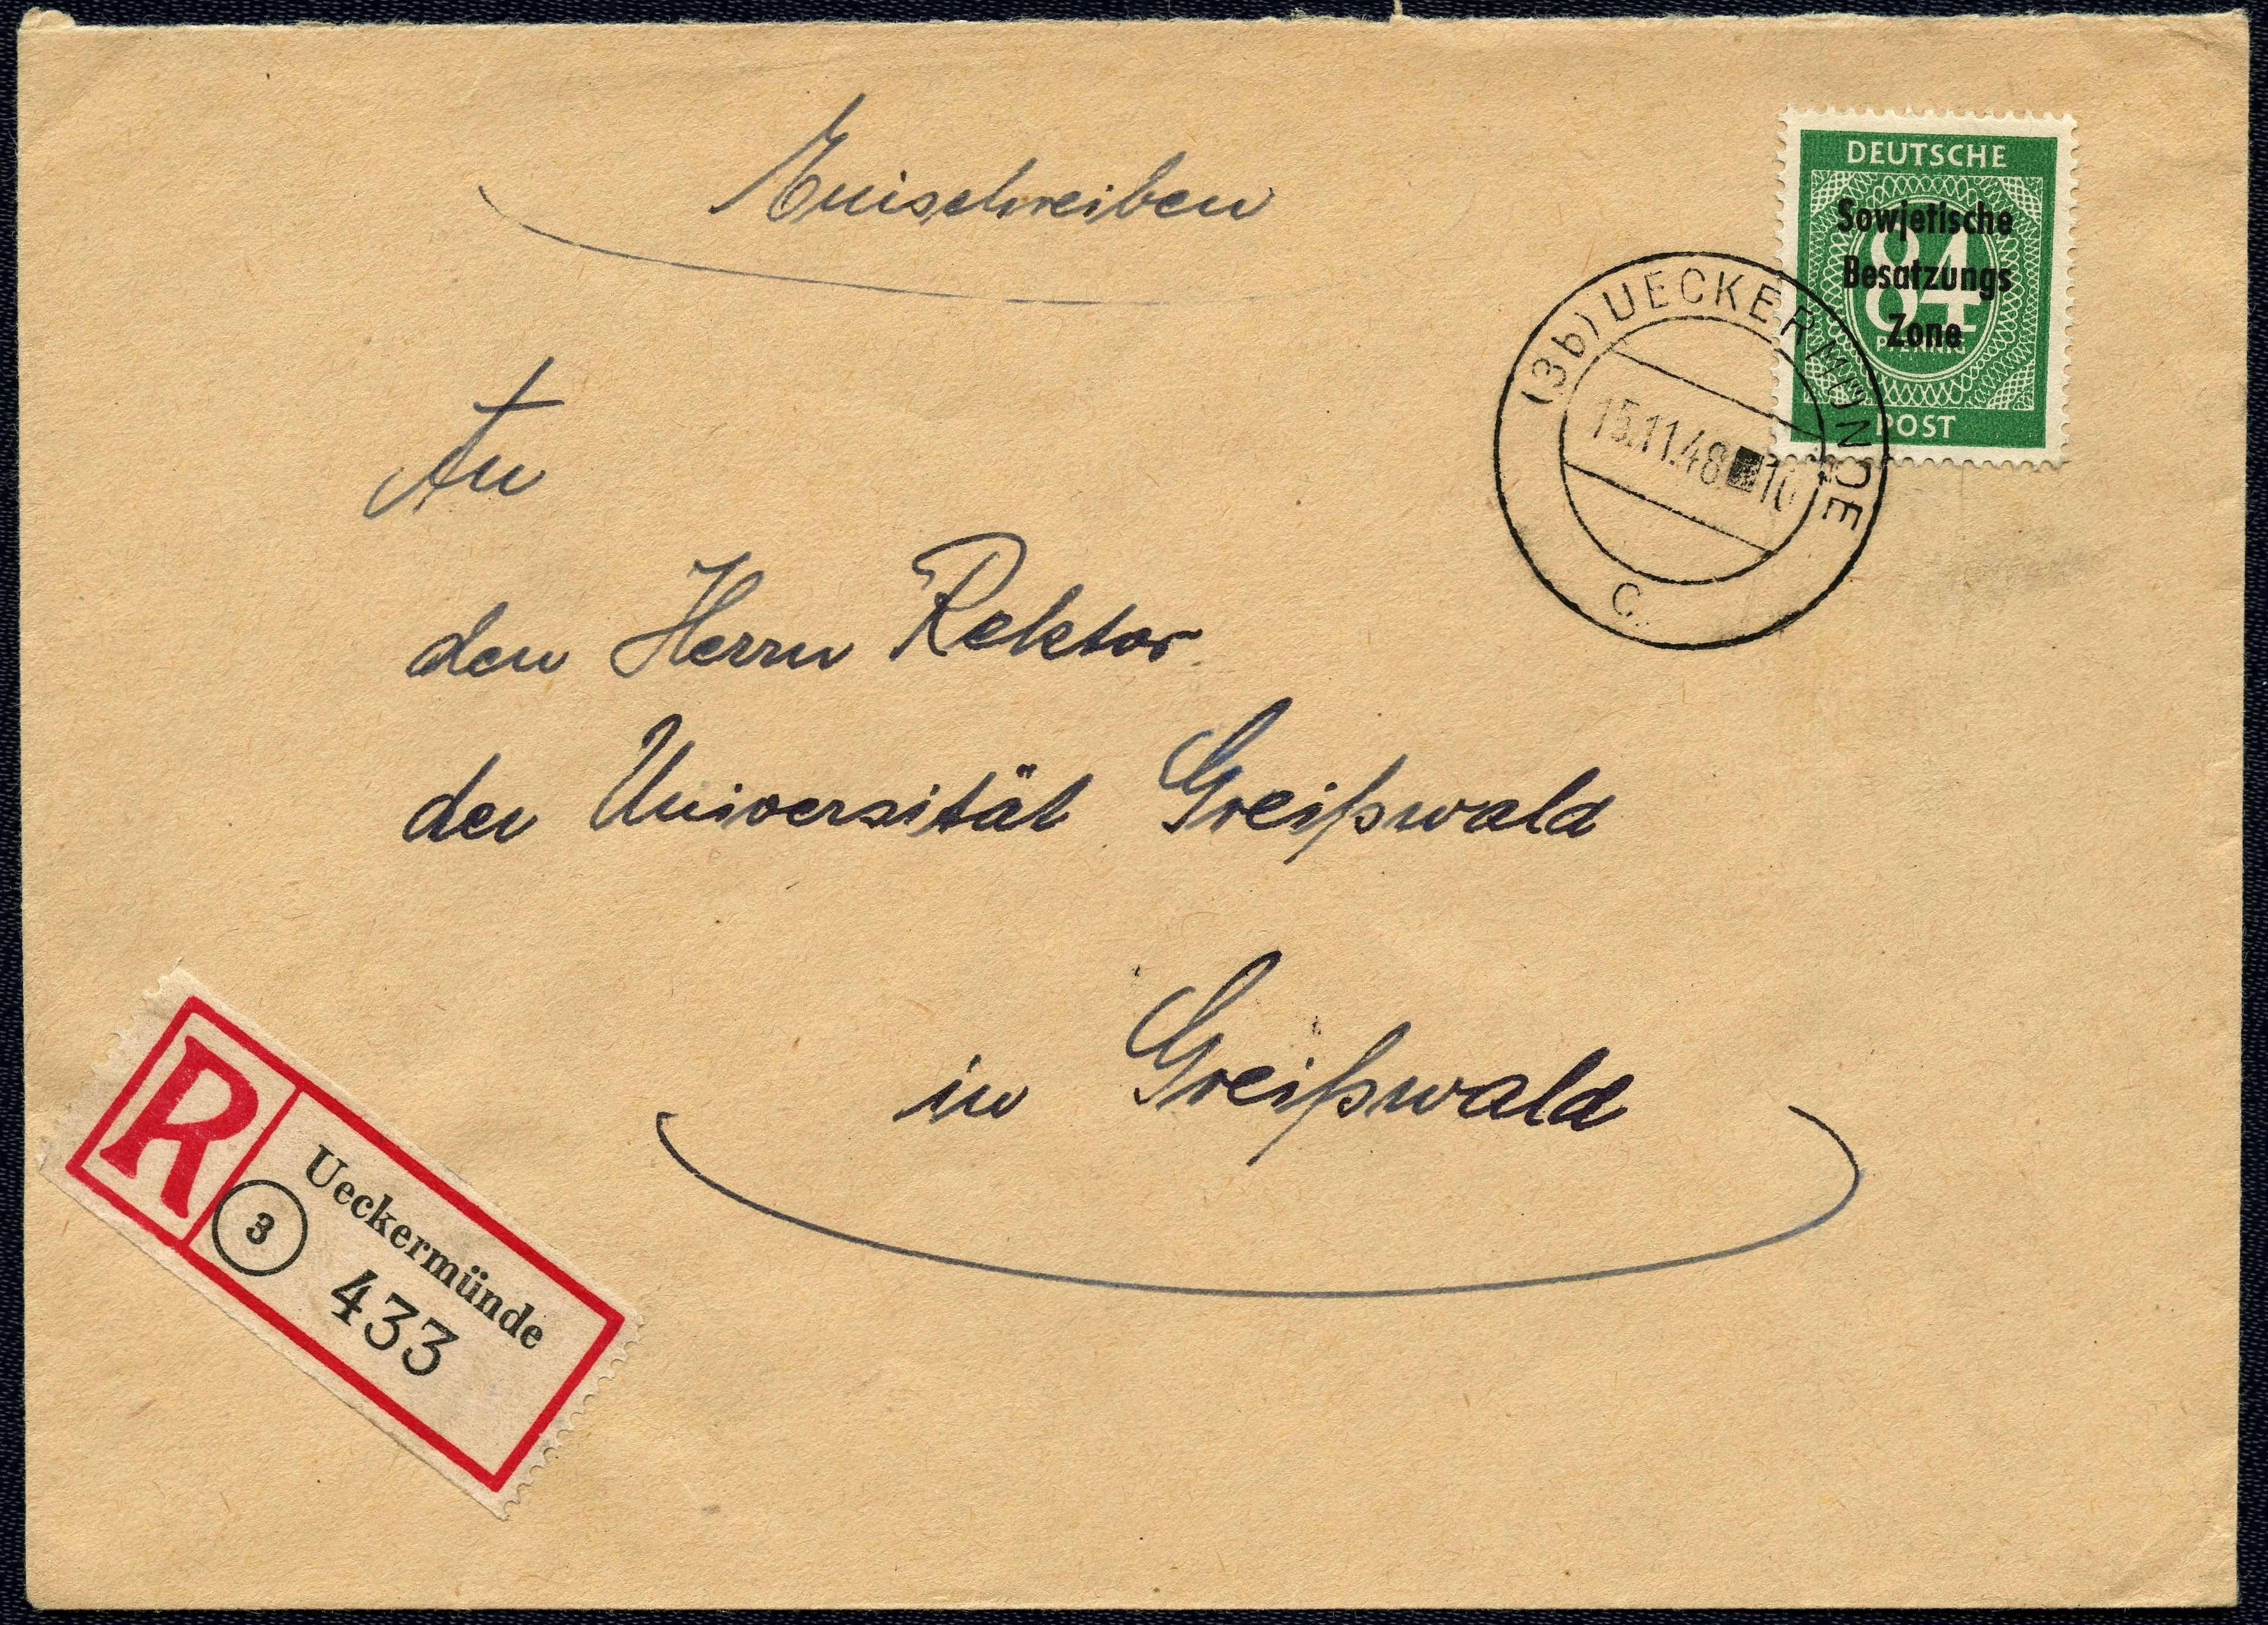 Einschreiben
DEUTSCHE
84
PFENNIG
Sowjetische
Besatzungs
Zone
POST
(3b) UECKERMÜNDE
15.11.48 10
c
An
den Herrn Rektor
der Universität Greifswald
in Greifswald
R
3
Ueckermünde
433